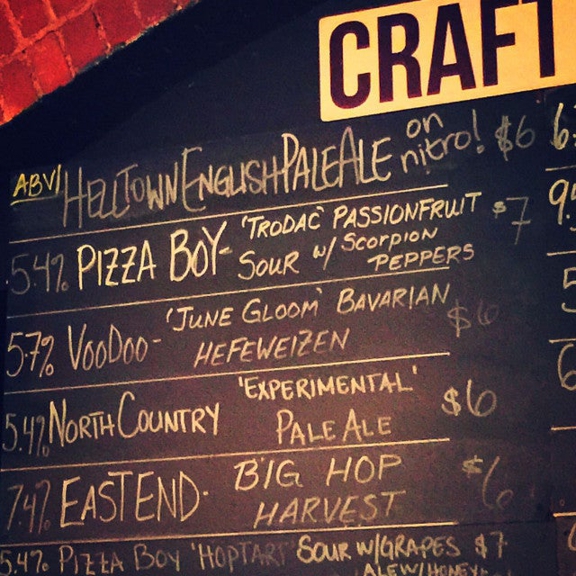 CRAFT
ABV/ HELLTOWN ENGLISH PALE ALE on nitro! $6
5.4% PIZZA BOY- 'TRODAC' PASSIONFRUIT $7
SOUR w/ SCORPION
PEPPERS
5.7% VOODOO- 'JUNE GLOOM' BAVARIAN $6
HEFEWEIZEN
5.4% NORTH COUNTRY 'EXPERIMENTAL' $6
PALE ALE
7.4% EAST END- BIG HOP $6
HARVEST
5.4% PIZZA BOY 'HOPTART' SOUR W/GRAPES $7
ALE W/HONEY